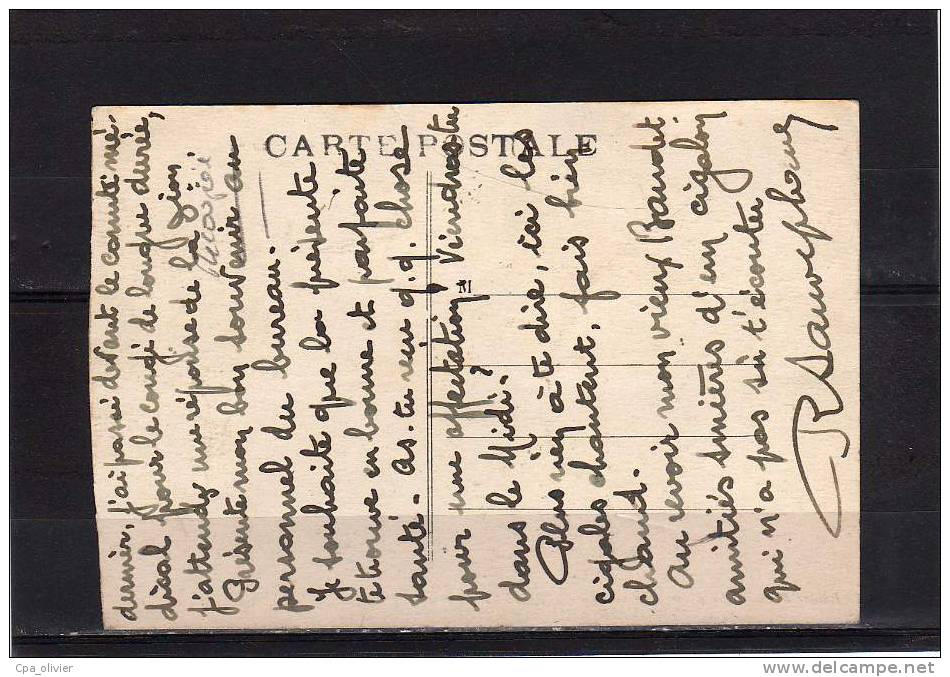 CARTE POSTALE
dernier, j'ai passé devant le comité mé-
dical pour le congé de longue durée,
j'attends une réponse de la
Présente mon bon souvenir au
personnel du bureau.
Je souhaite que la présente
te trouve en bonne et parfaite
santé. As-tu vu q.q. chose
pour une affectation? Viendras-tu
dans le Midi?
Plus rien à te dire, ici les
cigales chantent, fais bien
chaud.
Au revoir mon vieux Baudet.
amitiés sincères d'un cigalou
qui n'a pas su t'écouter
Cpa_olivier
delcampe.net